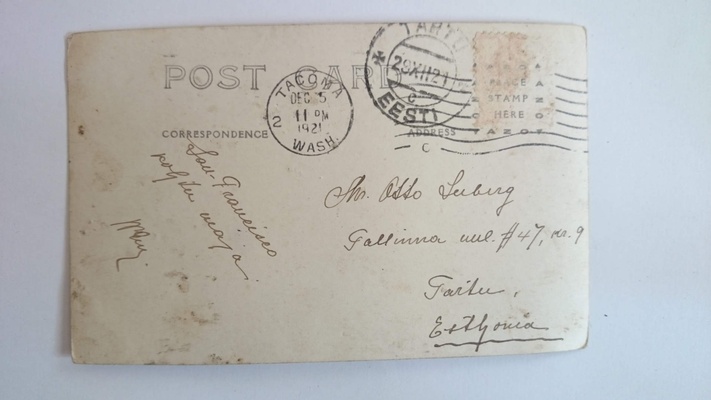 POST CARD
TARTU
29 XII 21
c
EESTI
TACOMA
DEC 5
11 PM
1921
2
WASH.
AZOA
PLACE
STAMP
HERE
AZOT
CORRESPONDENCE
ADDRESS
C
San-Francisco
maja.
Mr. Otto Seeberg
Tallinna uul. #47, nr. 9
Tartu,
Esthonia